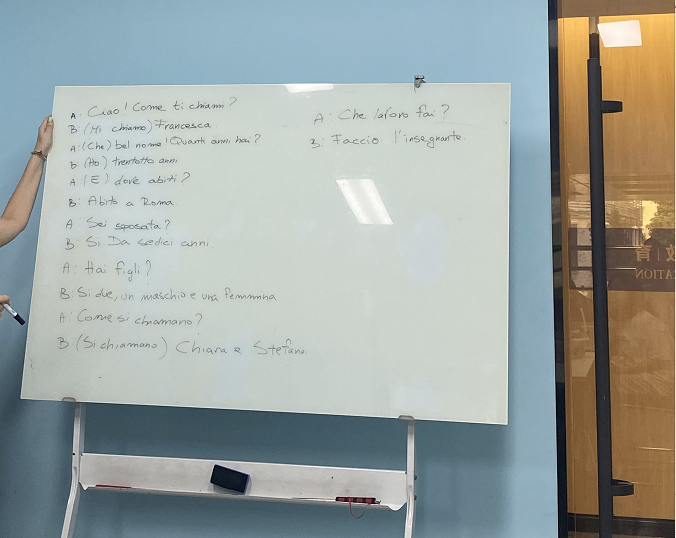 A: Ciao! Come ti chiami?
B: (Mi chiamo) Francesca
A: (Che) bel nome! Quanti anni hai?
B: (Ho) trentotto anni
A: (E) dove abiti?
B: Abito a Roma
A: Sei sposata?
B: Si. Da sedici anni
A: Hai figli?
B: Si due, un maschio e una femmina
A: Come si chiamano?
B: (Si chiamano) Chiara e Stefano.
A: Che lavoro fai?
B: Faccio l'insegnante.
育
CATION